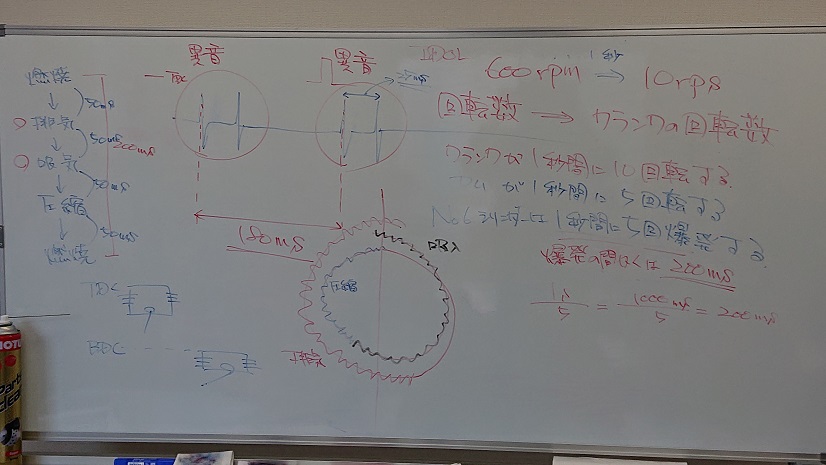 燃焼
↓ 50mS
排気
↓ 50mS
200mS
吸気
↓ 50mS
圧縮
↓ 50mS
燃焼
TDC
BDC
異音
異音
TDC
180mS
吸入
圧縮
排気
600rpm → 10rps
1秒
回転数 → クランクの回転数
クランクが1秒間に10回転する
カムが1秒間に5回転する
1秒間に5回爆発する
爆発の間かくは200mS
1000mS/5 = 200mS
MOTUL
Parts
Clean